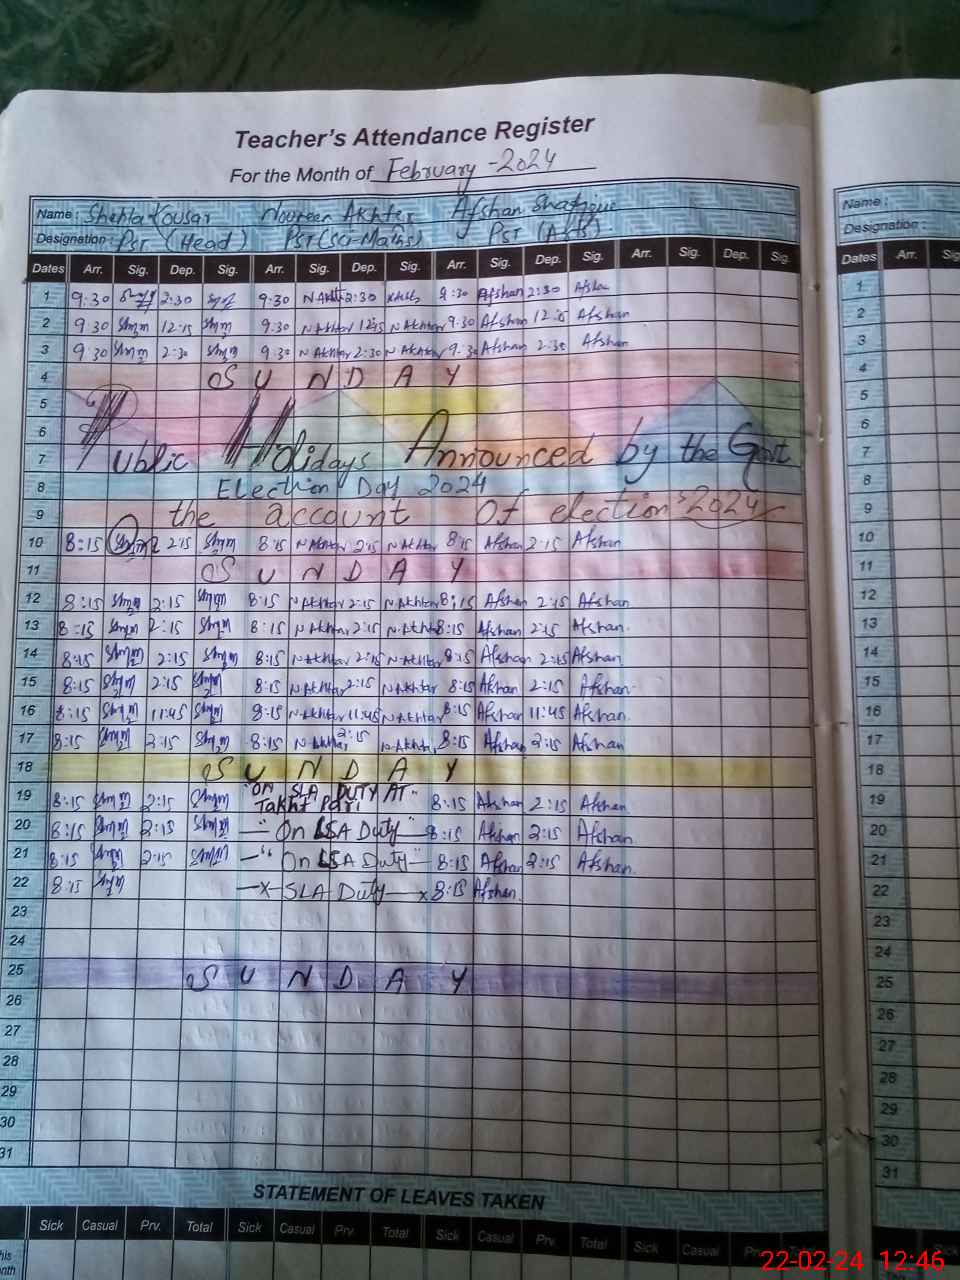 Teacher's Attendance Register
For the Month of February - 2024
Name : Shehla Kousar Noureen Akhter Afshan Shafique Name :
Designation : PST (Head) PST (Sci-Maths) PST (Arts). Designation :
Dates Arr. Sig. Dep. Sig. Arr. Sig. Dep. Sig. Arr. Sig. Dep. Sig. Arr. Sig. Dep. Sig. Dates Arr. Sig
1 9:30 2:30 9:30 2:30 9:30 Afshan 2:30 Afshan 1
2 9:30 12:15 9:30 N Akhtar 12:15 N Akhtar 9:30 Afshan 12:15 Afshan 2
3 9:30 2:30 9:30 N Akhtar 2:30 N Akhtar 9:30 Afshan 2:30 Afshan 3
4 S U N D A Y 4
5 5
6 6
7 Public Holidays Announced by the Govt 7
8 Election Day 2024 8
9 the account Of election 2024 9
10 8:15 2:15 8:15 N Akhtar 2:15 N Akhtar 8:15 Afshan 2:15 Afshan 10
11 S U N D A Y 11
12 8:15 2:15 8:15 N Akhtar 2:15 N Akhtar 8:15 Afshan 2:15 Afshan 12
13 8:15 2:15 8:15 N Akhtar 2:15 N Akhtar 8:15 Afshan 2:15 Afshan. 13
14 8:15 2:15 8:15 N Akhtar 2:15 N Akhtar 8:15 Afshan 2:15 Afshan 14
15 8:15 2:15 8:15 N Akhtar 2:15 N Akhtar 8:15 Afshan 2:15 Afshan 15
16 8:15 11:45 8:15 N Akhtar 11:45 N Akhtar 8:15 Afshan 11:45 Afshan. 16
17 8:15 2:15 8:15 N Akhtar 2:15 N Akhtar 8:15 Afshan 2:15 Afshan 17
18 S U N D A Y 18
19 8:15 2:15 "ON SLA DUTY AT" Takht Pari 8:15 Afshan 2:15 Afshan 19
20 8:15 2:15 —" On LSA Duty" 8:15 Afshan 2:15 Afshan. 20
21 8:15 2:15 —" On LSA Duty" 8:15 Afshan 2:15 Afshan. 21
22 8:15 —x— SLA Duty —x 8:15 Afshan. 22
23 23
24 24
25 S U N D A Y 25
26 26
27 27
28 28
29 29
30 30
31 31
STATEMENT OF LEAVES TAKEN
Sick Casual Prv. Total Sick Casual Prv. Total Sick Casual Prv. Total Sick Casual Prv. Total Sick
22-02-24 12:46